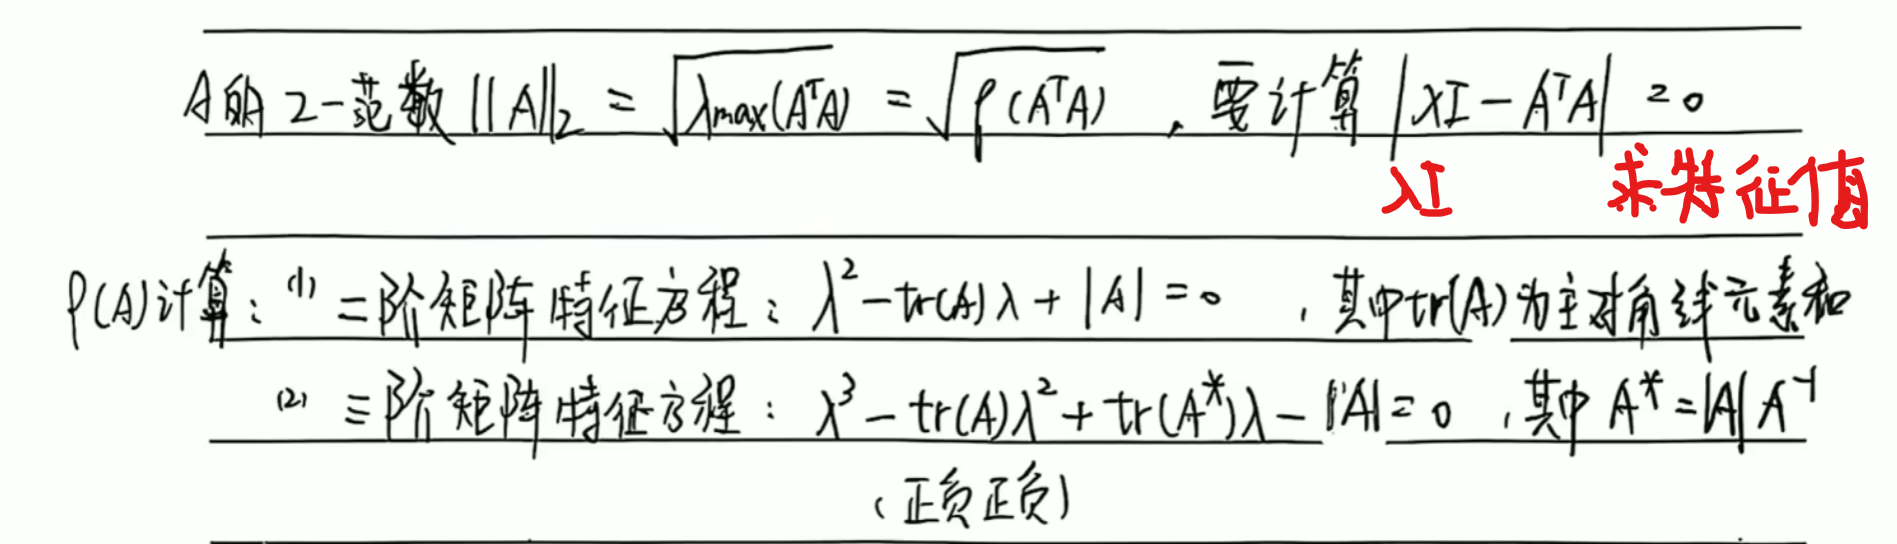 A的2-范数 ||A||₂ = √λmax(AᵀA) = √ρ(AᵀA) , 要计算 |λI - AᵀA| = 0
λI 求特征值
ρ(A)计算: (1) 二阶矩阵特征方程: λ² - tr(A)λ + |A| = 0 , 其中tr(A)为主对角线元素和
(2) 三阶矩阵特征方程: λ³ - tr(A)λ² + tr(A*)λ - |A| = 0 , 其中 A* = |A| A⁻¹
(正负正负)